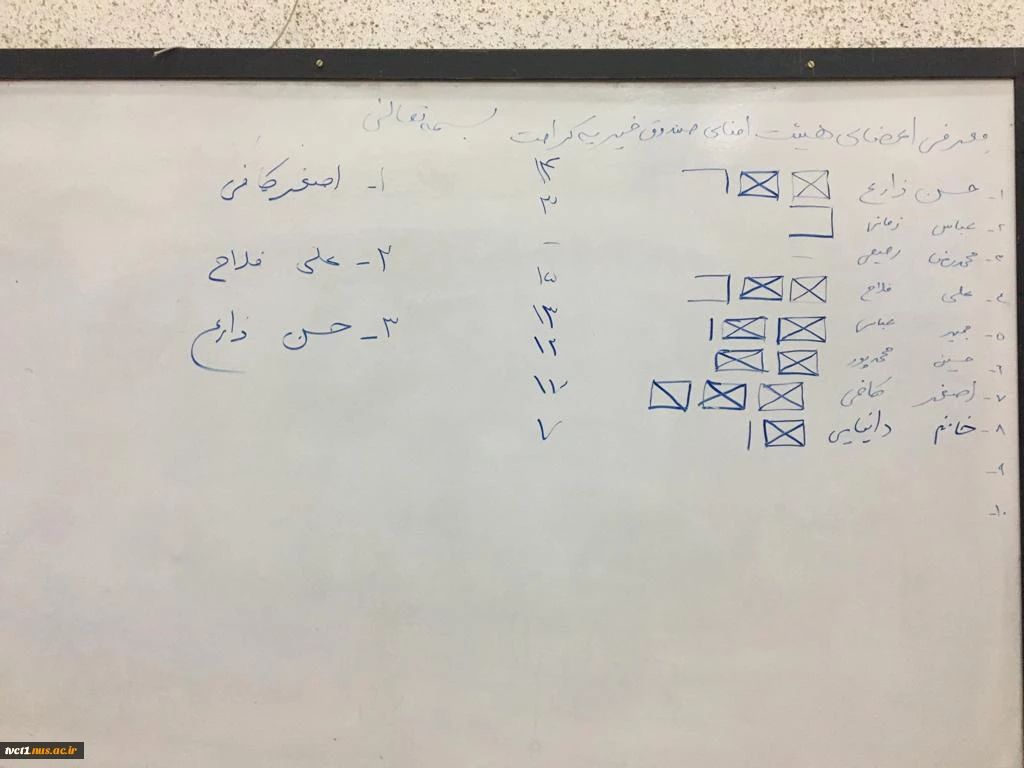 بسمه تعالی
معرفی اعضای هیئت امنای صندوق خیریه کرامت
۱- حسن ذارع ۱۴
۲- عباس زمانی ۳
۳- محمدرضا رحیمی -
۴- علی فلاح ۱۵
۵- عباس ۱۳
۶- حسین محمدپور ۱۲
۷- اصغر کافی
۸- خانم دانیایی ۷
۹-
۱۰-
۱- اصغر کافی
۲- علی فلاح
۳- حسن ذارع
tvct1.nus.ac.ir